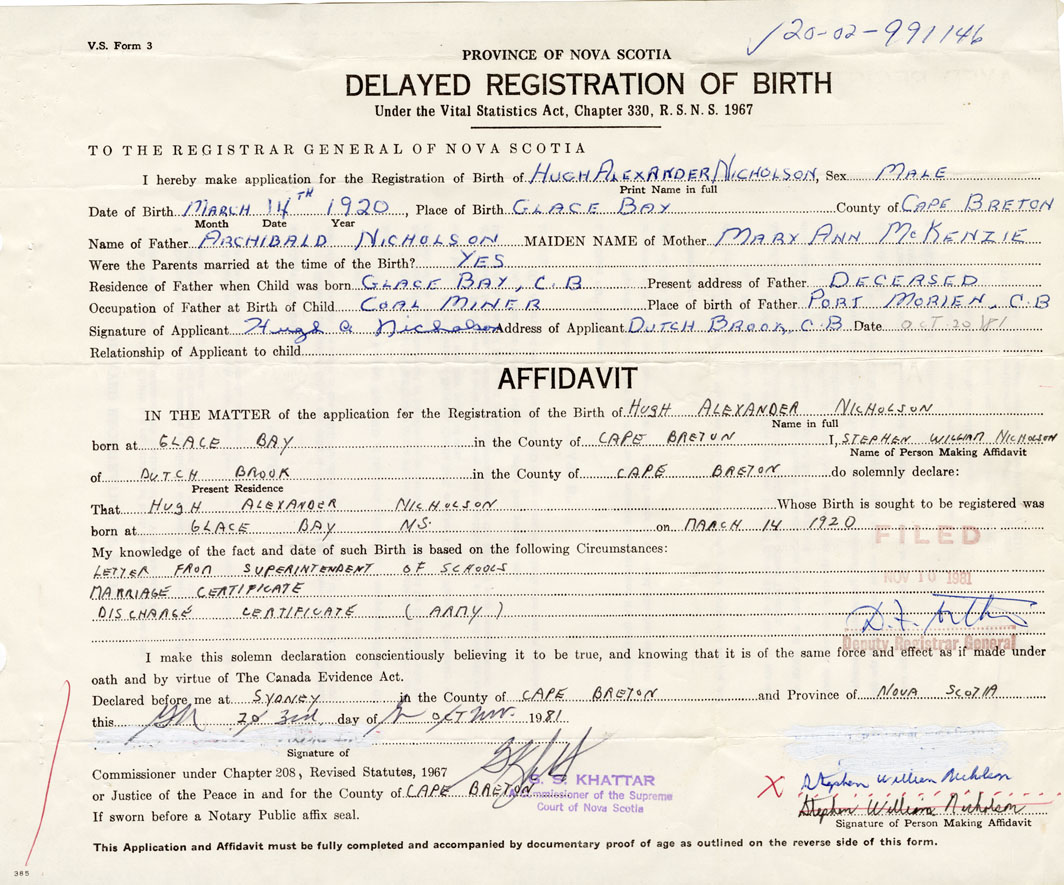 V.S. Form 3
20-02-991146
PROVINCE OF NOVA SCOTIA
DELAYED REGISTRATION OF BIRTH
Under the Vital Statistics Act, Chapter 330, R.S.N.S. 1967
TO THE REGISTRAR GENERAL OF NOVA SCOTIA
I hereby make application for the Registration of Birth of HUGH ALEXANDER NICHOLSON, Sex MALE
Print Name in full
Date of Birth MARCH 14TH 1920, Place of Birth GLACE BAY County of CAPE BRETON
Month Date Year
Name of Father ARCHIBALD NICHOLSON MAIDEN NAME of Mother MARY ANN MCKENZIE
Were the Parents married at the time of the Birth? YES
Residence of Father when Child was born GLACE BAY, C.B Present address of Father DECEASED
Occupation of Father at Birth of Child COAL MINER Place of birth of Father PORT MORIEN, C.B
Signature of Applicant Hugh A Nicholson Address of Applicant DUTCH BROOK, C.B Date OCT 20/81
Relationship of Applicant to child
AFFIDAVIT
IN THE MATTER of the application for the Registration of the Birth of HUGH ALEXANDER NICHOLSON
Name in full
born at GLACE BAY in the County of CAPE BRETON I, STEPHEN WILLIAM NICHOLSON
Name of Person Making Affidavit
of DUTCH BROOK in the County of CAPE BRETON do solemnly declare:
Present Residence
That HUGH ALEXANDER NICHOLSON Whose Birth is sought to be registered was
born at GLACE BAY NS. on MARCH 14 1920
FILED
My knowledge of the fact and date of such Birth is based on the following Circumstances:
LETTER FROM SUPERINTENDENT OF SCHOOLS
NOV 10 1981
MARRIAGE CERTIFICATE
DISCHARGE CERTIFICATE (ARMY)
D.F.
Deputy Registrar General
I make this solemn declaration conscientiously believing it to be true, and knowing that it is of the same force and effect as if made under
oath and by virtue of The Canada Evidence Act.
Declared before me at SYDNEY in the County of CAPE BRETON and Province of NOVA SCOTIA
this 20 3rd day of OCT Nov. 1981
Signature of
Commissioner under Chapter 208, Revised Statutes, 1967
S. S. KHATTAR
or Justice of the Peace in and for the County of CAPE BRETON
A Commissioner of the Supreme
Court of Nova Scotia
X Stephen William Nicholson
Stephen William Nicholson
If sworn before a Notary Public affix seal.
Signature of Person Making Affidavit
This Application and Affidavit must be fully completed and accompanied by documentary proof of age as outlined on the reverse side of this form.
385